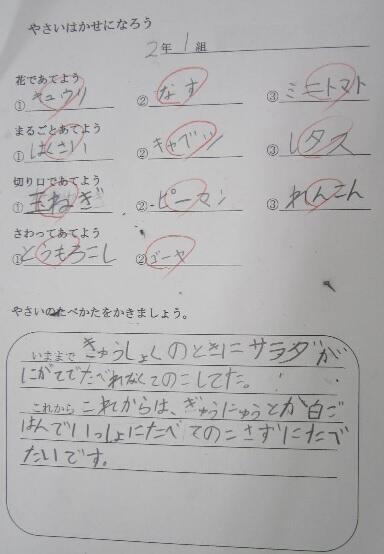 やさいはかせになろう
2年 1組
花であてよう
① キュウリ ② なす ③ ミニトマト
まるごとあてよう
① はくさい ② キャベツ ③ レタス
切り口であてよう
① 玉ねぎ ② ピーマン ③ れんこん
さわってあてよう
① とうもろこし ② ゴーヤ
やさいのたべかたをかきましょう。
いままで きゅうしょくのときにサラダが
にがてでたべれなくてのこしてた。
これから これからは、ぎゅうにゅうとか白ご
はんでいっしょにたべてのこさずにたべ
たいです。